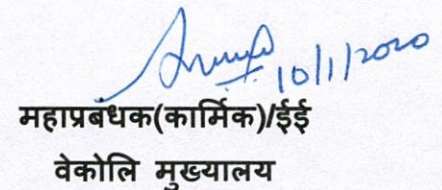 10/1/2020
महाप्रबंधक(कार्मिक)/ईई
वेकोलि मुख्यालय